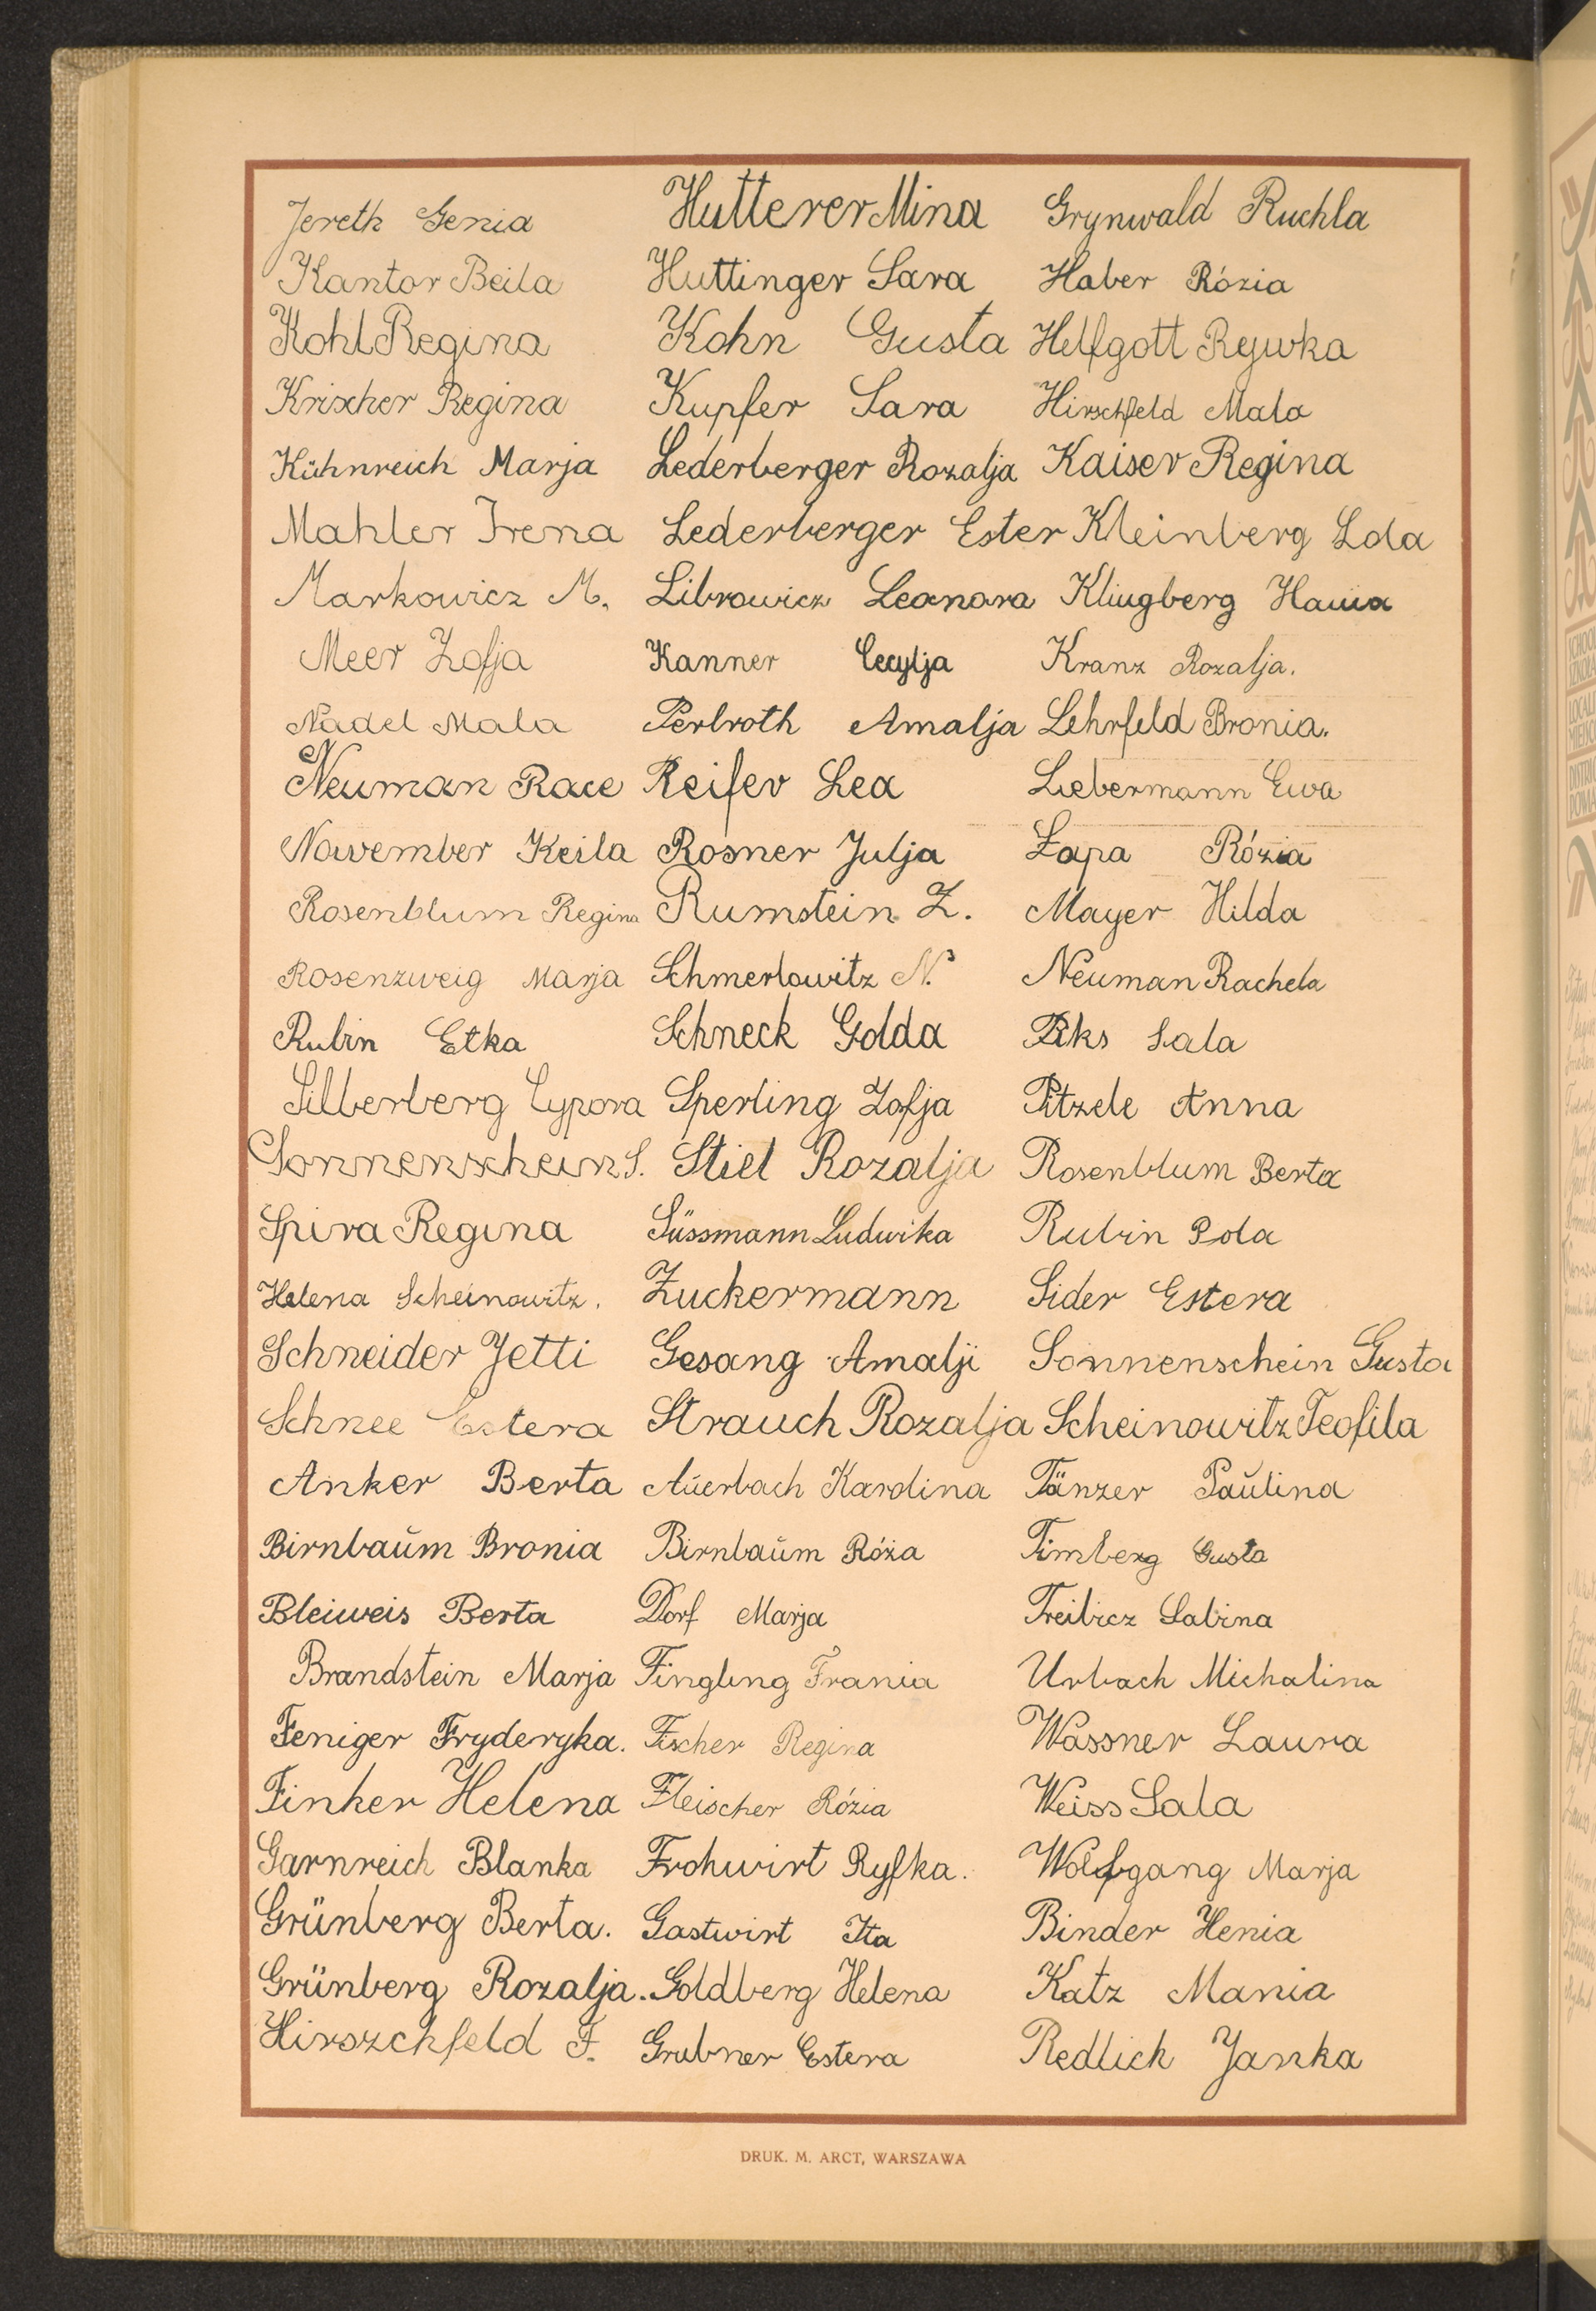 Jereth Genia
Kantor Beila
Kohl Regina
Krischer Regina
Kühnreich Marja
Mahler Irena
Markowicz M.
Meer Zofja
Nadel Mala
Neuman Race
Nowember Keila
Rosenblum Regina
Rosenzweig Marja
Rubin Etka
Silberberg Cypora
Sonnenschein S.
Spira Regina
Helena Scheinowitz.
Schneider Jetti
Schnee Estera
Anker Berta
Birnbaŭm Bronia
Bleiweis Berta
Brandstein Marja
Feniger Fryderyka.
Finker Helena
Garnreich Blanka
Grünberg Berta.
Grünberg Rozalja.
Hirszchfeld F.
Hutterer Mina
Huttinger Sara
Kohn Gusta
Kupfer Sara
Lederberger Rozalja
Lederberger Ester
Librowicz Leonora
Kanner Cecylja
Perlroth Amalja
Reifer Lea
Rosner Julja
Rumstein Z.
Schmerlowitz N.
Schneck Golda
Sperling Zofja
Stiel Rozalja
Süssmann Ludwika
Zuckermann
Gesang Amalji
Strauch Rozalja
Aŭerbach Karolina
Birnbaŭm Róża
Dorf Marja
Fingling Frania
Fischer Regina
Fleischer Rózia
Frohwirt Ryfka.
Gastwirt Ita
Goldberg Helena
Grubner Estera
Grynwald Ruchla
Haber Rózia
Helfgott Rywka
Hirschfeld Mala
Kaiser Regina
Kleinberg Lola
Klingberg Hania
Kranz Rozalja.
Lehrfeld Bronia.
Liebermann Ewa
Łapa Rózia
Mayer Hilda
Neuman Rachela
Piks Sala
Pitzele Anna
Rosenblum Berta
Rubin Pola
Sider Estera
Sonnenschein Gusta
Scheinowitz Teofila
Tänzer Paŭlina
Timberg Gusta
Treibicz Sabina
Urbach Michalina
Wassner Laura
Weiss Sala
Wolfgang Marja
Binder Henia
Katz Mania
Redlich Janka
DRUK. M. ARCT, WARSZAWA